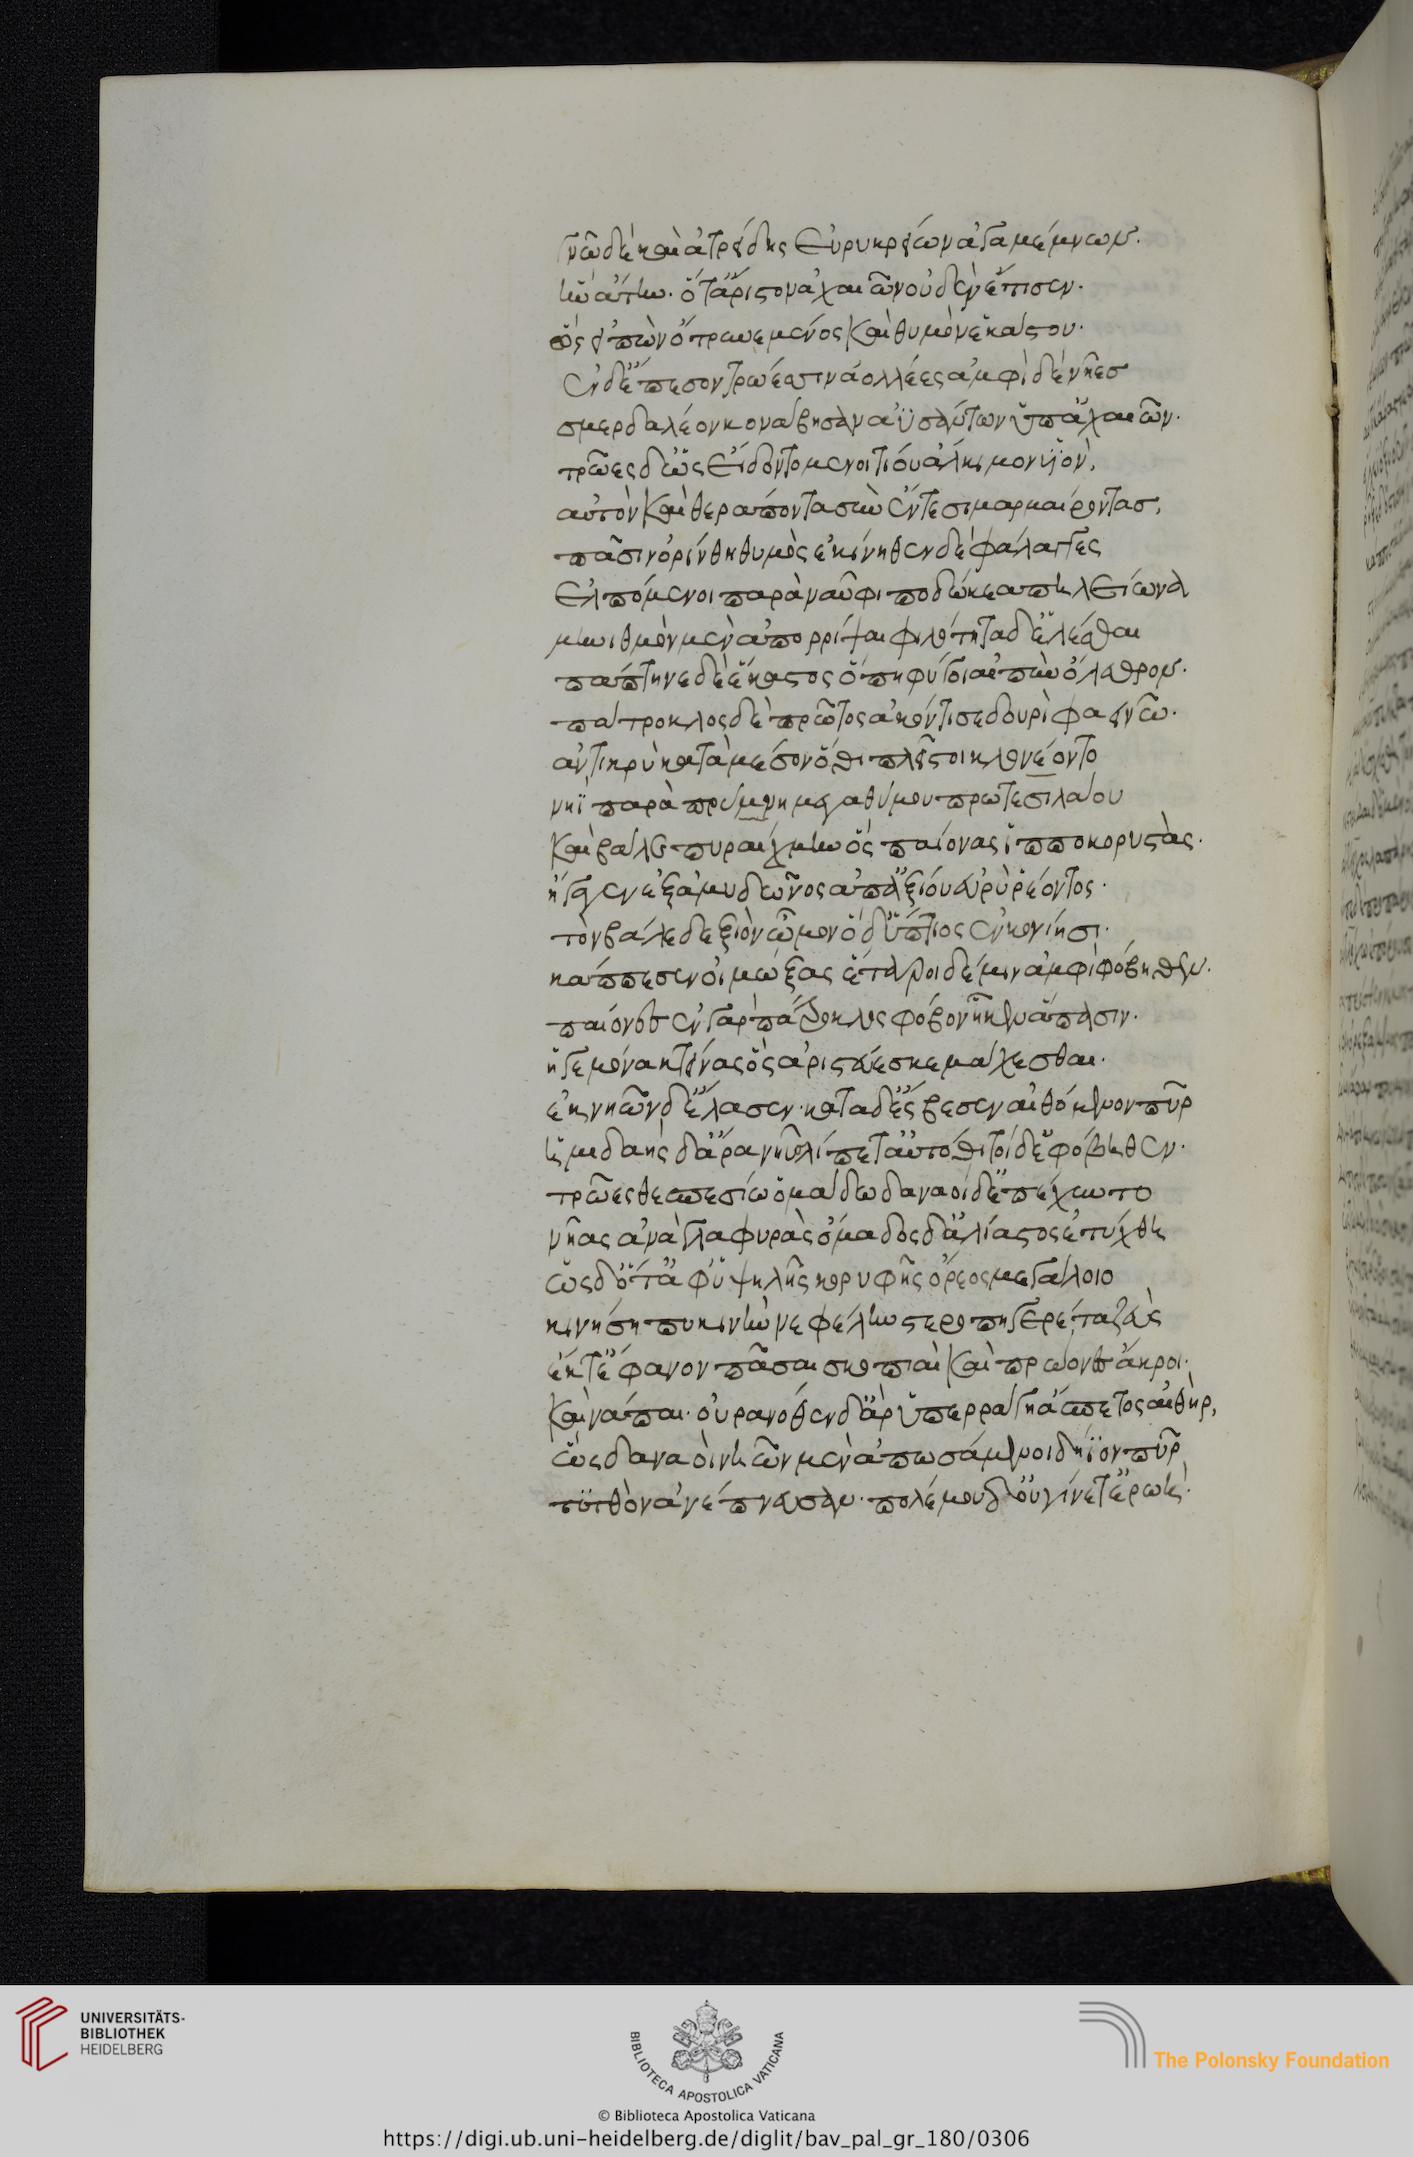 γνῶ δὲ καὶ ἀτρείδης εὐρυκρείων ἀγαμέμνων.
ἣν ἄτην. ὅτ' ἄριστον ἀχαιῶν οὐδὲν ἔτισεν.
ὣς εἰπὼν ὄτρυνε μένος καὶ θυμὸν ἑκάστου.
ἐν δ' ἔπεσον τρώεσσιν ἀολλέες ἀμφὶ δὲ νῆες
σμερδαλέον κονάβησαν ἀϋσάντων ὑπ' ἀχαιῶν.
τρῶες δ' ὡς εἴδοντο μενοιτίου ἄλκιμον υἱὸν,
αὐτὸν καὶ θεράποντα σὺν ἔντεσι μαρμαίροντας,
πᾶσιν ὀρίνθη θυμὸς ἐκίνηθεν δὲ φάλαγγες
ἐλπόμενοι παρὰ ναῦφι ποδώκεα πηλείωνα
μηνιθμὸν μὲν ἀπορρίψαι φιλότητα δ' ἑλέσθαι
πάπτηνε δὲ ἕκαστος ὅπη φύγοι αἰπὺν ὄλεθρον.
πάτροκλος δὲ πρῶτος ἀκόντισε δουρὶ φαεινῶ.
ἀντικρὺ κατὰ μέσον ὅθι πλεῖστοι κλονέοντο
νηῒ παρὰ πρύμνη μεγαθύμου πρωτεσιλάου
καὶ βάλε πυραίχμην ὃς παίονας ἱπποκορυστὰς.
ἤγαγεν ἐξ ἀμυδῶνος ἀπ' ἀξιοῦ εὐρὺ ῥέοντος.
τὸν βάλε δεξιὸν ὦμον ὁ δ' ὕπτιος ἐν κονίησι.
κάππεσεν οἰμώξας ἕταροι δέ μιν ἀμφὶ φόβηθεν.
παίονες ἐν γὰρ πάτροκλος φόβον ἧκεν ἅπασιν.
ἡγεμόνα κτείνας ὃς ἀριστεύεσκε μάχεσθαι.
ἐκ νηῶν δ' ἔλασεν. κατὰ δ' ἔσβεσεν αἰθόμενον πῦρ
ἡμιδαὴς δ' ἄρα νηῦς λίπετ' αὐτόθι τοὶ δ' ἐφόβηθεν.
τρῶες θεσπεσίω ὁμάδω δαναοὶ δ' ἐπέχυντο
νῆας ἀνὰ γλαφυρὰς ὅμαδος δ' ἀλίαστος ἐτύχθη
ὡς δ' ὅτ' ἀφ' ὑψηλῆς κορυφῆς ὄρεος μεγάλοιο
κινήση πυκινὴν νεφέλην στεροπηγερέτα ζεὺς
ἔκ τ' ἔφανον πᾶσαι σκοπιαὶ καὶ πρώονες ἄκροι.
καὶ νάπαι. οὐρανόθεν δ' ἄρ' ὑπερράγη ἄσπετος αἰθὴρ,
ὣς δαναοὶ νηῶν μὲν ἀπωσάμενοι δήϊον πῦρ
τυτθὸν ἀνέπνευσαν. πολέμου δ' οὐ γίνετ' ἐρωή.
UNIVERSITÄTS-
BIBLIOTHEK
HEIDELBERG
BIBLIOTECA APOSTOLICA VATICANA
The Polonsky Foundation
© Biblioteca Apostolica Vaticana
https://digi.ub.uni-heidelberg.de/diglit/bav_pal_gr_180/0306